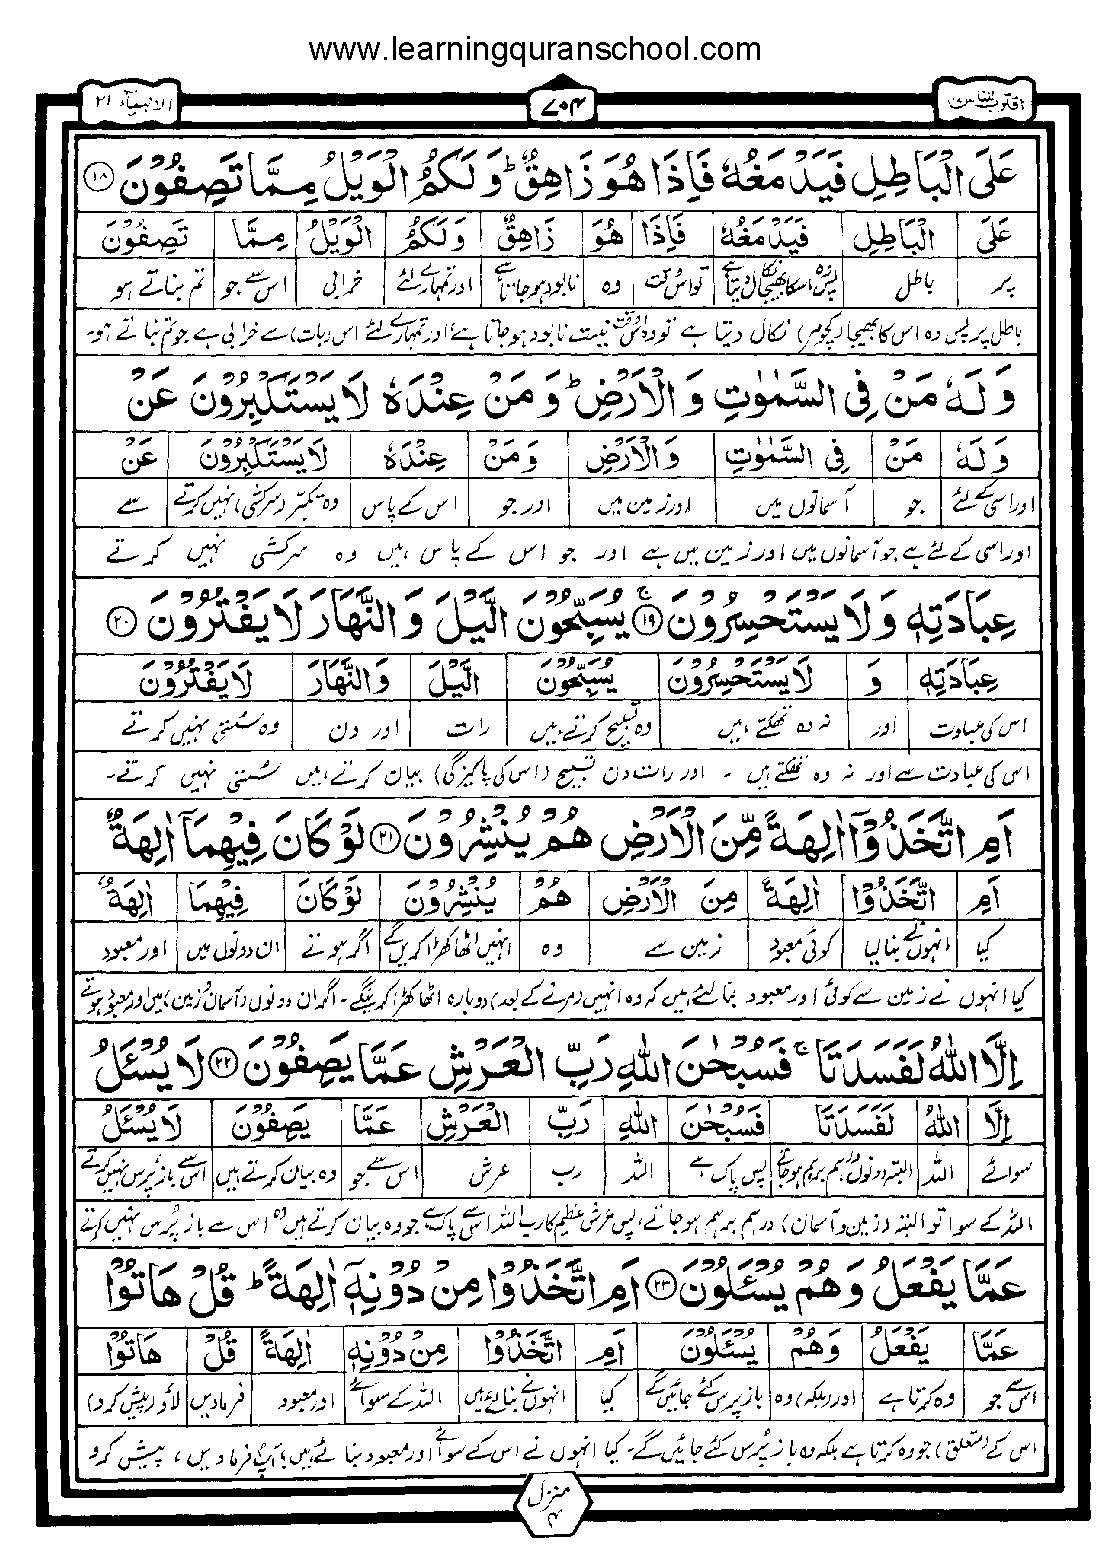 www.learningquranschool.com
اقترب للناس ۱۷
۷۰۴
الانبیآء ۲۱
عَلَى الْبَاطِلِ فَيَدْمَغُهٗ فَاِذَا هُوَ زَاهِقٌ ؕ وَلَكُمُ الْوَيْلُ مِمَّا تَصِفُوْنَ ۱۸
عَلَى الْبَاطِلِ فَيَدْمَغُهٗ فَاِذَا هُوَ زَاهِقٌ وَلَكُمُ الْوَيْلُ مِمَّا تَصِفُوْنَ
پر باطل پس وہ اس کا بھیجا نکال دیتا ہے تو اس وقت وہ نابود ہو جاتا ہے اور تمہارے لئے خرابی اس سے جو تم بناتے ہو
باطل پر پس وہ اس کا بھیجا (کچومر) نکال دیتا ہے تو وہ اس وقت نیست نابود ہو جاتا ہے اور تمہارے لئے اس (بات) سے خرابی ہے جو تم بناتے ہو۔
وَلَهٗ مَنْ فِى السَّمٰوٰتِ وَالْاَرْضِ ؕ وَمَنْ عِنْدَهٗ لَا يَسْتَكْبِرُوْنَ عَنْ
وَلَهٗ مَنْ فِى السَّمٰوٰتِ وَالْاَرْضِ وَمَنْ عِنْدَهٗ لَا يَسْتَكْبِرُوْنَ عَنْ
اور اسی کے لئے جو آسمانوں میں اور زمین میں اور جو اس کے پاس وہ تکبر (سرکشی) نہیں کرتے سے
اور اسی کے لئے ہے جو آسمانوں میں اور زمین میں ہے اور جو اس کے پاس ہیں وہ سرکشی نہیں کرتے
عِبَادَتِهٖ وَلَا يَسْتَحْسِرُوْنَ ۱۹ ۚ يُسَبِّحُوْنَ الَّيْلَ وَالنَّهَارَ لَا يَفْتُرُوْنَ ۲۰
عِبَادَتِهٖ وَ لَا يَسْتَحْسِرُوْنَ يُسَبِّحُوْنَ الَّيْلَ وَالنَّهَارَ لَا يَفْتُرُوْنَ
اس کی عبادت اور نہ وہ تھکتے ہیں وہ تسبیح کرتے ہیں رات اور دن وہ سستی نہیں کرتے
اس کی عبادت سے اور نہ وہ تھکتے ہیں ۔ اور رات دن تسبیح (اس کی پاکیزگی) بیان کرتے ہیں سستی نہیں کرتے۔
اَمِ اتَّخَذُوْٓا اٰلِهَةً مِّنَ الْاَرْضِ هُمْ يُنْشِرُوْنَ ۲۱ لَوْ كَانَ فِيْهِمَآ اٰلِهَةٌ
اَمِ اتَّخَذُوْا اٰلِهَةً مِنَ الْاَرْضِ هُمْ يُنْشِرُوْنَ لَوْ كَانَ فِيْهِمَا اٰلِهَةٌ
کیا انہوں نے بنا لیا کوئی معبود زمین سے وہ انہیں اٹھا کھڑا کریں گے اگر ہوتے ان دونوں میں اور معبود
کیا انہوں نے زمین سے کوئی اور معبود بنا لئے ہیں کہ وہ انہیں (مرنے کے بعد) دوبارہ اٹھا کھڑا کریں گے۔ اگر ان دونوں (آسمان و زمین) میں اور معبود ہوتے
اِلَّا اللّٰهُ لَفَسَدَتَا ۚ فَسُبْحٰنَ اللّٰهِ رَبِّ الْعَرْشِ عَمَّا يَصِفُوْنَ ۲۲ لَا يُسْـَٔلُ
اِلَّا اللّٰهُ لَفَسَدَتَا فَسُبْحٰنَ اللّٰهِ رَبِّ الْعَرْشِ عَمَّا يَصِفُوْنَ لَا يُسْـَٔلُ
سوائے اللہ البتہ دونوں درہم برہم ہو جاتے پس پاک ہے اللہ رب عرش اس سے جو وہ بیان کرتے ہیں اس سے باز پرس نہیں کرتے
اللہ کے سوا تو البتہ (زمین و آسمان) درہم برہم ہو جاتے، پس عرش عظیم کا رب اللہ اس سے پاک ہے جو وہ بیان کرتے ہیں وہ اس سے باز پرس نہیں کرتے
عَمَّا يَفْعَلُ وَهُمْ يُسْـَٔلُوْنَ ۲۳ اَمِ اتَّخَذُوْا مِنْ دُوْنِهٖٓ اٰلِهَةً ؕ قُلْ هَاتُوْا
عَمَّا يَفْعَلُ وَهُمْ يُسْـَٔلُوْنَ اَمِ اتَّخَذُوْا مِنْ دُوْنِهٖ اٰلِهَةً قُلْ هَاتُوْا
اس سے جو وہ کرتا ہے اور (بلکہ) وہ باز پرس کئے جائیں گے کیا انہوں نے بنا لئے ہیں اللہ کے سوائے اور معبود فرما دیں لاؤ (پیش کرو)
اس کے (متعلق) جو وہ کرتا ہے بلکہ وہ باز پرس کئے جائیں گے۔ کیا انہوں نے اس کے سوائے اور معبود بنائے ہیں؟ آپ فرما دیں، پیش کرو
منزل ۴